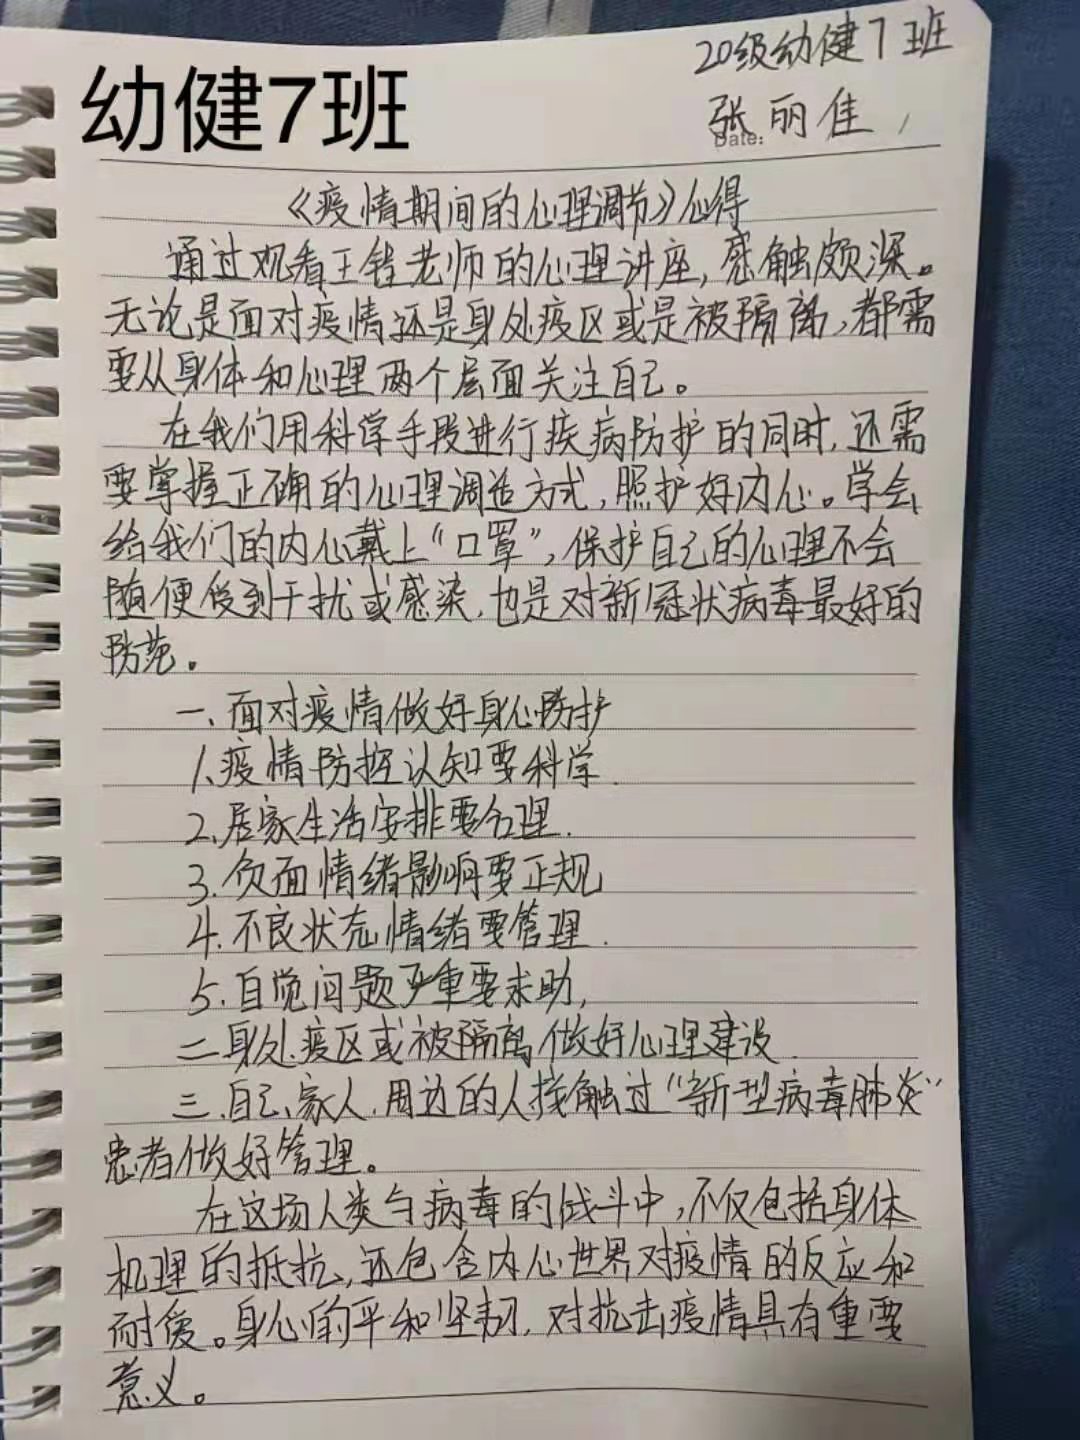 20级幼健7班
幼健7班
张丽佳
Date:
《疫情期间的心理调节》心得
通过观看王锃老师的心理讲座,感触颇深。
无论是面对疫情还是身处疫区或是被隔离,都需
要从身体和心理两个层面关注自己。
在我们用科学手段进行疾病防护的同时,还需
要掌握正确的心理调适方式,照护好内心。学会
给我们的内心戴上“口罩”,保护自己的心理不会
随便受到干扰或感染,也是对新冠状病毒最好的
防范。
一、面对疫情做好身心防护
1.疫情防控认知要科学.
2.居家生活安排要合理.
3.负面情绪影响要正规
4.不良状态情绪要管理.
5.自觉问题严重要求助,
二.身处疫区或被隔离做好心理建设.
三.自己、家人.周边的人接触过“新型病毒肺炎”
患者做好管理。
在这场人类与病毒的战斗中,不仅包括身体
机理的抵抗,还包含内心世界对疫情的反应和
耐受。身心的平和坚韧,对抗击疫情具有重要
意义。